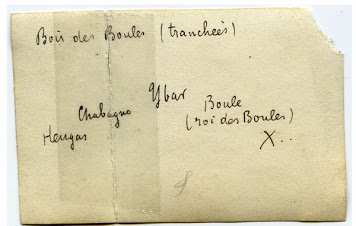 Bois des Boules (tranchées)
Ybar
Chabagno
Boule
Heugas
(roi des Boules)
X..